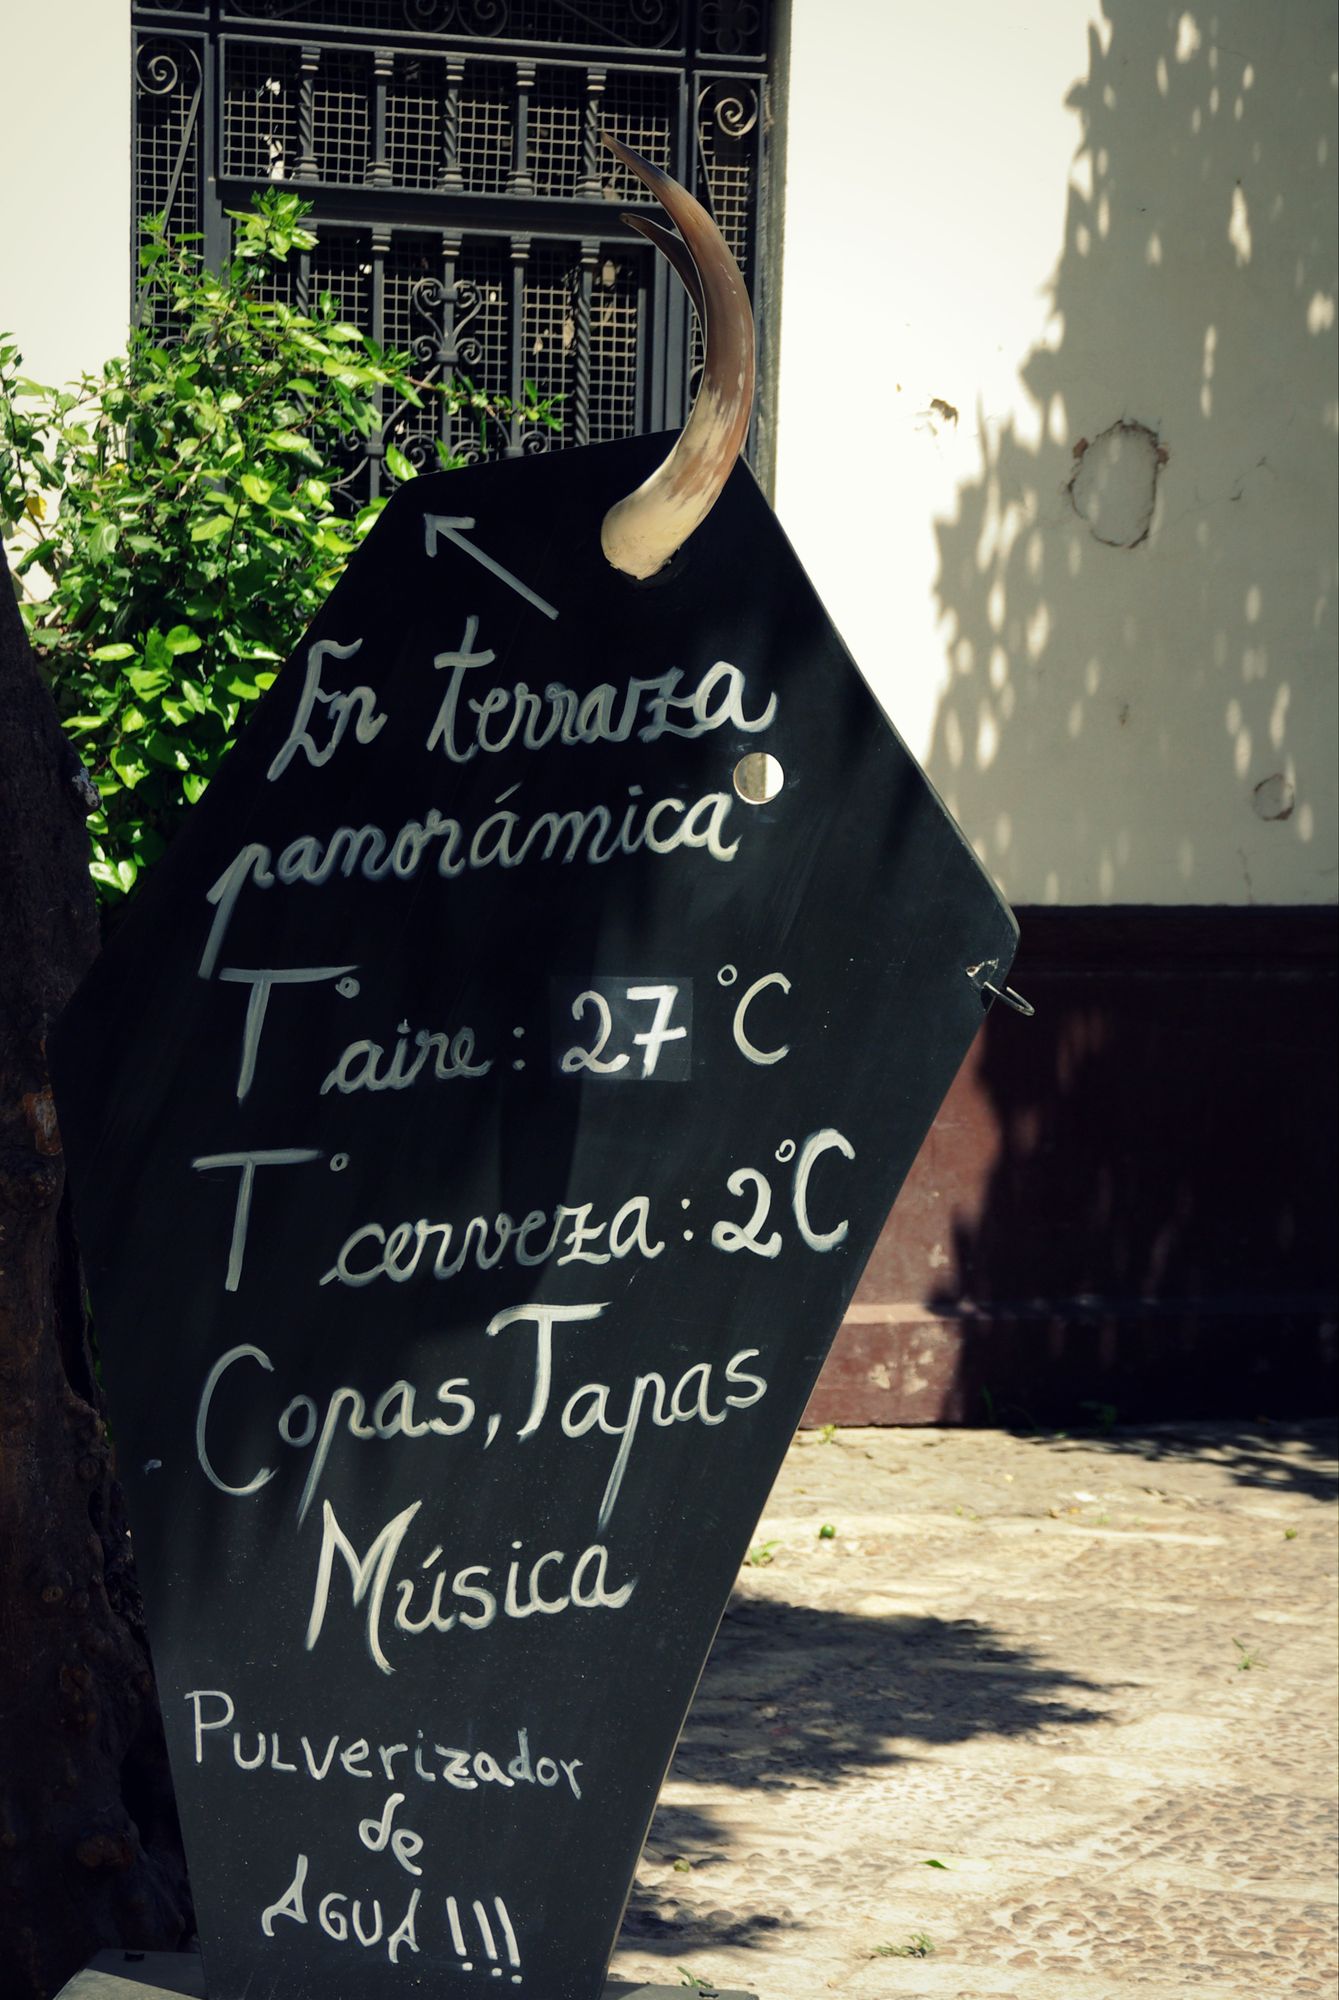 En terraza
panorámica
T° aire: 27 °C
T° cerveza: 2°C
Copas, Tapas
Música
PULverizador
de
AGUA!!!